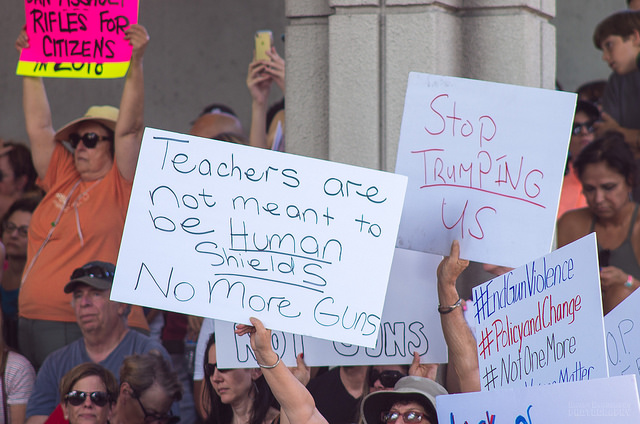 RIFLES FOR
CITIZENS
IN 2018
Teachers are
not meant to
be Human
Shields
No More Guns
Stop
TRUMPING
US
NOT GUNS
#EndGunViolence
#PolicyandChange
#NotOneMore
Matter
O.P.